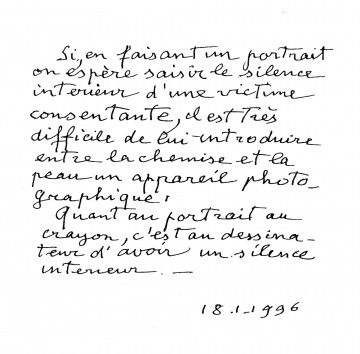 Si, en faisant un portrait
on espère saisir le silence
intérieur d'une victime
consentante, il est très
difficile de lui introduire
entre la chemise et la
peau un appareil photo-
graphique!
Quant au portrait au
crayon, c'est au dessina-
teur d'avoir un silence
interieur. —
18.1.1996